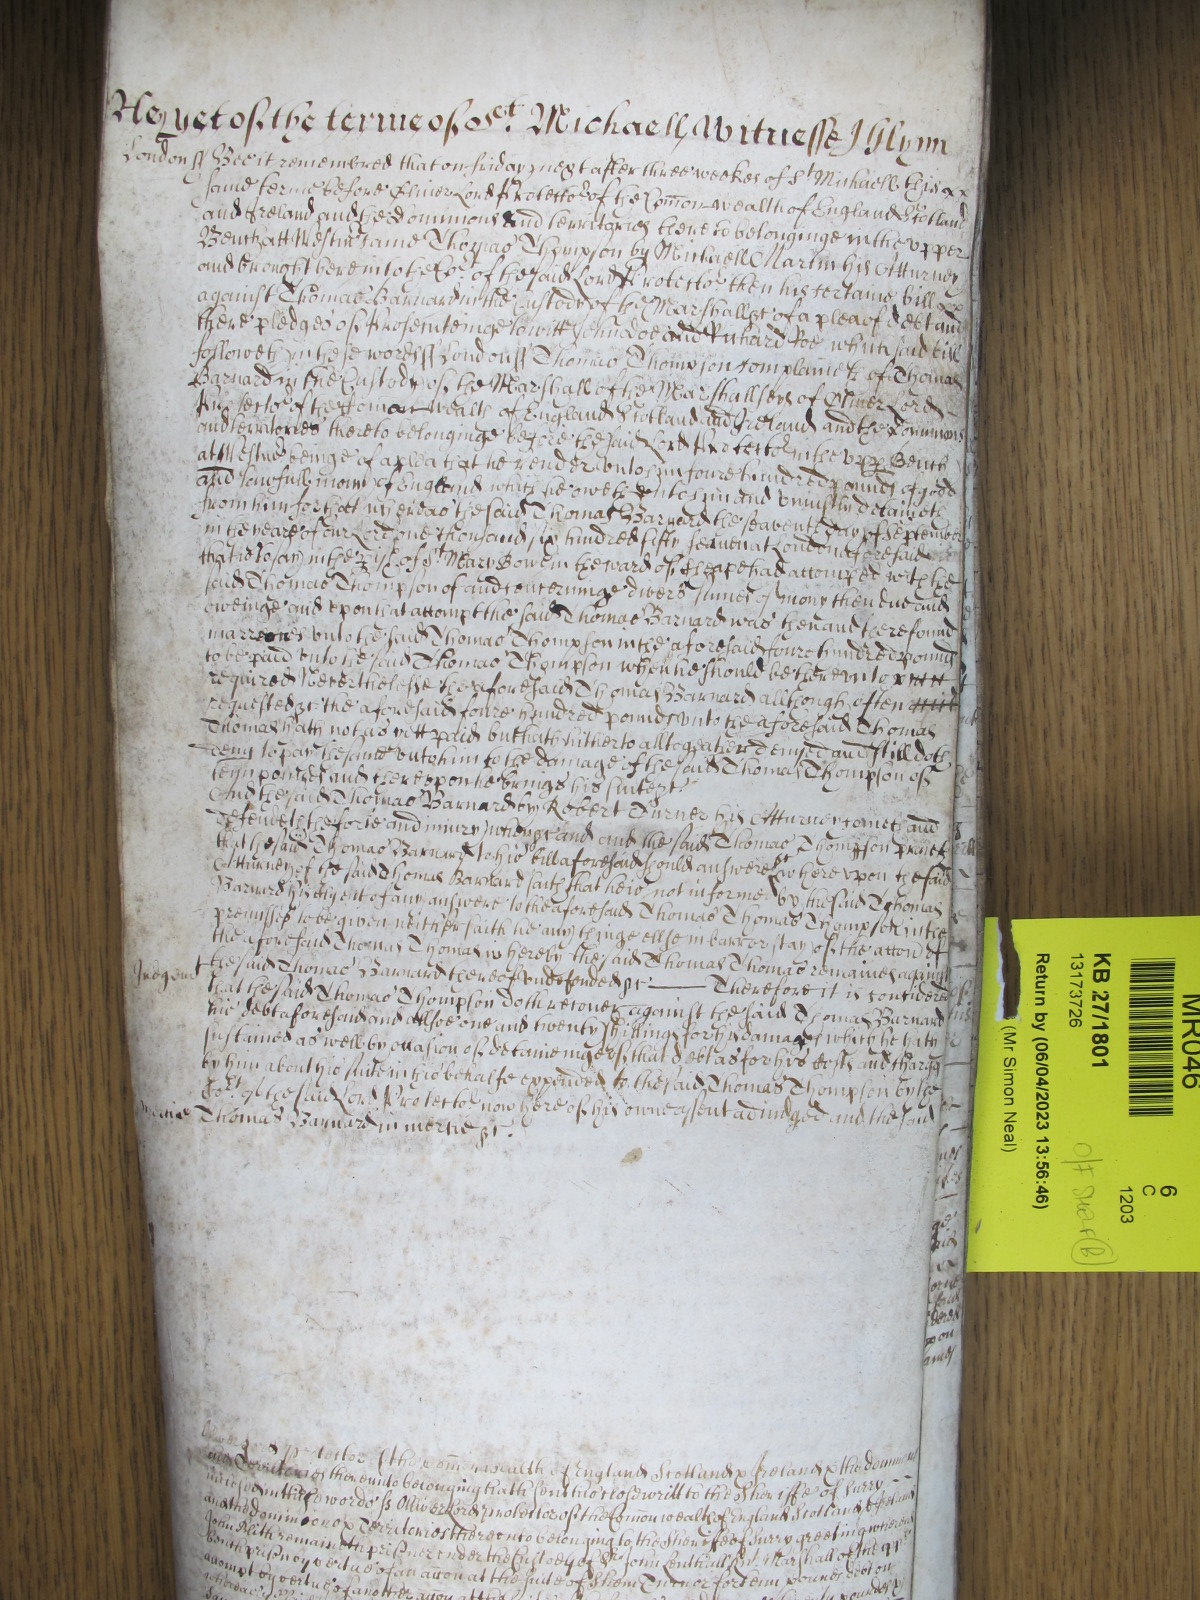 As yet of the terme of St. Michaell Witnesse J Glynn
London ss Bee it remembred that on friday next after three weekes of St Michaell this
same terme before Oliver Lord Protector of the Comon wealth of England Scotland
and Ireland and the Dominions and territories thereto belonginge in the vpper
Bench att Westmr came Thomas Thompson by Michaell Martin his Atturney
and brought here into the Cort of the said Lord Protector then his certaine bill
against Thomas Barnard in the Custody of the Marshall &c of a plea of debt and
there pledges of prosecuteinge to witt John doe and Richard Roe which said bill
followeth in these words ss London ss Thomas Thompson complaineth of Thomas
Barnard in the Custody of the Marshall of the Marshallsey of Oliver Lord
Protector of the Comon wealth of England Scotland and Ireland and the Dominions
and territories thereto belonginge before the said Lord Protector in the vpper Bench
at Westmr beinge of a plea that he render vnto him foure hundred pounds of good
and lawfull mony of England which he oweth vnto him and vniustly detaineth
from him for that whereas the said Thomas Barnard the seaventh day of September
in the yeare of our Lord one thousand six hundred fifty seaven at London aforesaid
that is to say in the pish of St Mary Bow in the ward of Cheape had accompted with the
said Thomas Thompson of and concerninge divers summes of mony then due and
oweinge and vpon that accompt the said Thomas Barnard was then and there found
in arreares vnto the said Thomas Thompson in the aforesaid foure hundred pounds
to be paid vnto the said Thomas Thompson when he should be therevnto
required Neverthelesse the aforesaid Thomas Barnard allthough often
requested &c the aforesaid foure hundred pounds vnto the aforesaid Thomas
Thomas hath not as yett paid but hath hitherto alltogeather denyed and still doth
deny to pay the same vnto him to the damage of the said Thomas Thompson of
tenn pounds and therevpon he brings his suite &c
And the said Thomas Barnard by Robert Turner his Atturney cometh and
defendeth the force and iniury when &c and the said Thomas Thompson prayeth
that the said Thomas Barnard to his bill aforesaid should answere &c where vpon the said
Atturney of the said Thomas Barnard saith that he is not informed by the said Thomas
Barnard his Clyent of any answere to the aforesaid Thomas Thomas Thompson in the
premisses to be given neither saith he any thinge ellse in barr or stay of the accon of
the aforesaid Thomas Thomas whereby the said Thomas Thomas remaines against
Iudgmt the said Thomas Barnard thereof vndefended &c Therefore it is considered
that the said Thomas Thompson doth recover against the said Thomas Barnard
his debt aforesaid and allsoe one and twenty shillings for his damages which he hath
sustained as well by occasion of detaineinge of that debt as for his costs and charges
by him about his suite in this behalfe expended to the said Thomas Thompson by the
Cort of the said Lord Protector now here of his owne assent adiudged and the said
mercie Thomas Barnard in mercie &c
Protector of the Common wealth of England Scotland & Ireland & the dominions
and Territories therevnto belonging hath sent his close writt to the Sheriffe of Surry
in these words ss Oliver Lord Protector of the Comon wealth of England Scotland & Ireland
and the dominions & Territories therevnto belonging to the Sheriffe of Surry greeting whereas
John remaineth prisoner vnder the Custody of Sr John Lenthall Kt Marshall of the vpper
Bench prison by vertue of an accon at the suite of Turnor for tenn pounds debt
MR046
KB 27/1801
13173726
Return by (06/04/2023 13:56:46)
(Mr Simon Neal)
6
C
1203